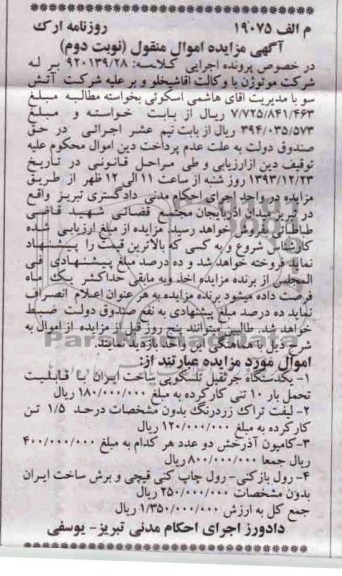 م الف ۱۹۰۷۵ روزنامه ارک
آگهی مزایده اموال منقول (نوبت دوم)
در خصوص پرونده اجرایی کلاسه: ۹۲۰۱۳۹/۲۸ بر له
شرکت موتوژن با وکالت اقاشیخلو و بر علیه شرکت آتش
سو با مدیریت اقای هاشمی اسکوئی بخواسته مطالبه مبلغ
۷/۷۲۵/۸۴۱/۴۶۳ ریال از بابت خواسته و مبلغ
۳۹۴/۰۳۵/۵۷۳ ریال از بابت نیم عشر اجرائی در حق
صندوق دولت به علت عدم پرداخت دین اموال محکوم علیه
توقیف دین ازارزیابی و طی مراحل قانونی در تاریخ
۱۳۹۳/۱۲/۲۳ روز شنبه از ساعت ۱۱ الی ۱۲ ظهر از طریق
مزایده در واحد اجرای احکام مدنی دادگستری تبریز واقع
در تبریز میدان اذربایجان مجتمع قضائی شهید قاضی
طباطبائی بفروش خواهد رسید. مزایده از مبلغ ارزیابی شده
کارشناس شروع و به کسی که بالاترین قیمت را پیشنهاد
نماید فروخته خواهد شد و ده درصد مبلغ پیشنهادی فی
المجلس از برنده مزایده اخذ و به مابقی حداکثر یک ماه
فرصت داده میشود برنده مزایده به هر عنوان اعلام انصراف
نماید ده درصد مبلغ پیشنهادی به نفع صندوق دولت ضبط
خواهد شد. طالبین میتوانند پنج روز قبل از مزایده از اموال به
شرح ذیل با هماهنگی این واحد بازدید نمایند.
اموال مورد مزایده عبارتند از:
۱- یکدستگاه جرثقیل تلسکوپی ساخت ایران با قابلیت
تحمل بار ۱۰ تنی کارکرده به مبلغ ۱۸۰/۰۰۰/۰۰۰ ریال
۲- لیفت تراک زردرنگ بدون مشخصات درحد ۱/۵ تن
کارکرده به مبلغ ۱۲۰/۰۰۰/۰۰۰ ریال
۳-کامیون آذرخش دو عدد هر کدام به مبلغ ۴۰۰/۰۰۰/۰۰۰
ریال جمعا ۸۰۰/۰۰۰/۰۰۰ ریال
۴- رول بازکنی- رول چاپ کنی قیچی و برش ساخت ایران
بدون مشخصات ۲۵۰/۰۰۰/۰۰۰ ریال
جمع کل به ارزش ۱/۳۵۰/۰۰۰/۰۰۰ ریال
دادورز اجرای احکام مدنی تبریز- یوسفی